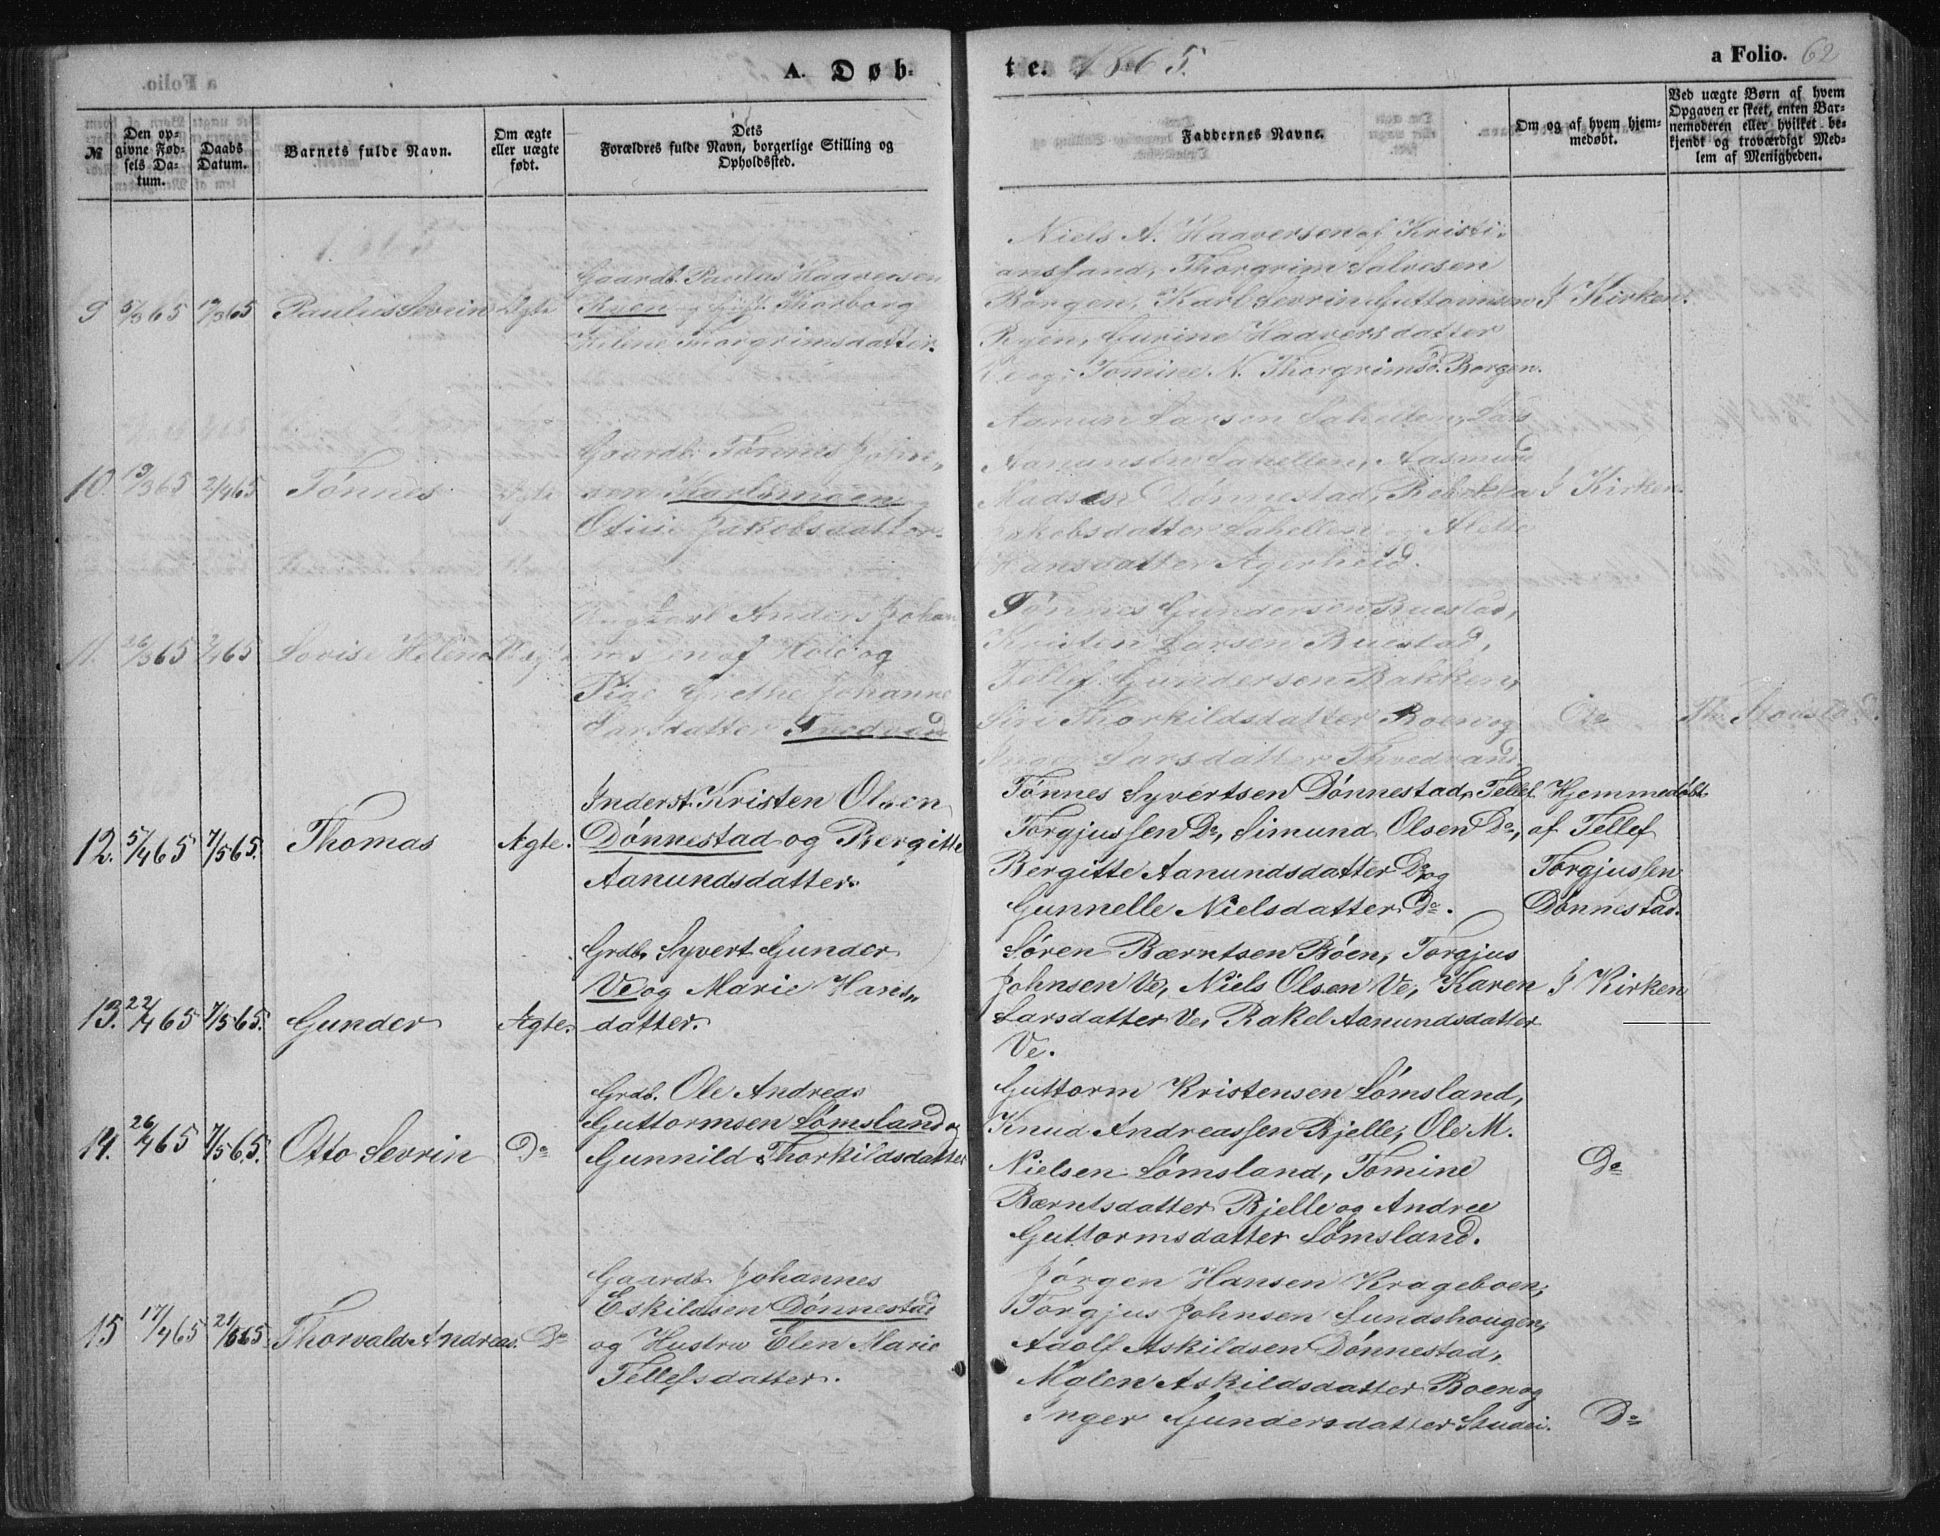 A. Døb-
te. 1865.
a Folio. 62
№
Den op-
givne Fød-
sels Da-
tum.
Daabs
Datum.
Barnets fulde Navn.
Om ægte
eller uægte
født.
Dets
Forældres fulde Navn, borgerlige Stilling og
Opholdssted.
Faddernes Navne.
Om og af hvem hjem-
medøbt.
Ved uægte Børn af hvem
Opgaven er skeet, enten Bar-
nemoderen eller hvilket be-
kjendt og troværdigt Med-
lem af Menigheden.
9 5/3 65 17/3 65 Paulus Sevrin Ægte
Gaardb. Paulus Haaversen
Ryen og Thorborg
Helene Thorgrimsdatter.
Niels A. Haaversen af Kristi-
ansand, Thorgrim Salvesen
Borgen, Karl Sevrin Guttormsen
Ryen, Gurine Haaversdatter
og Tomine N. Thorgrimsd. Borgen.
I Kirken.
10. 13/3 65 2/4 65 Tønnes Ægte
Gaardb. Tønnes John-
sen Karlsmoen og
Otine Jakobsdatter.
Aanun Larsen Sahellen, Lars
Aanunsen Sahellen, Aasmund
Madsen Dønnestad, Rebekka
Jakobsdatter Sahellen og Alette
Hansdatter Agerheid.
I Kirken.
11. 26/3 65 65 Lovise Helene
Ungkarl Anders Johan
sen af Hole og
Pige Grethe Johanne
Larsdatter
Tønnes Gundersen Ruestad,
Kristen Larsen Ruestad,
Tellef Gundersen Bakken,
Siri Thorkildsdatter Boen og
Inger Larsdatter
Do
12. 5/4 65 7/5 65. Thomas Ægte.
Inderst. Kristen Olsen
Dønnestad og Bergitte
Aanundsdatter.
Tønnes Syvertsen Dønnestad, Tellef
Torgjussen Do, Simund Olsen Do,
Bergitte Aanundsdatter Do og
Gunnelle Nielsdatter Do.
Hjemmedøbt
af Tellef
Torgjussen
Dønnestad.
13. 22/4 65 7/5 65. Gunder Ægte.
Grdb. Syvert Gunder
Ve og Marie Hans-
datter.
Søren Bærntsen Bøen, Torgjus
Johnsen Ve, Niels Olsen Ve, Karen
Larsdatter Ve, Rakel Aanundsdatter
Ve.
I Kirken
14. 26/4 65 7/5 65. Otto Sevrin Do
Grdb. Ole Andreas
Guttormsen Sømsland og
Gunnild Thorkildsdatter
Guttorm Kristensen Sømsland,
Knud Andreassen Bjelle, Ole M.
Nielsen Sømsland, Tomine
Bærntsdatter Bjelle og Andree
Guttormsdatter Sømsland.
Do
15 17/4 65 21/5 65 Thorvald Andreas. Do
Gaardb. Johannes
Eskildsen Dønnestad
og Hustru Elen Marie
Tellefsdatter.
Jørgen Hansen Krageboen,
Torgjus Johnsen Sundshougen,
Adolf Askildsen Dønnestad,
Malen Askildsdatter Boen og
Inger Gundersdatter Studei.
Do